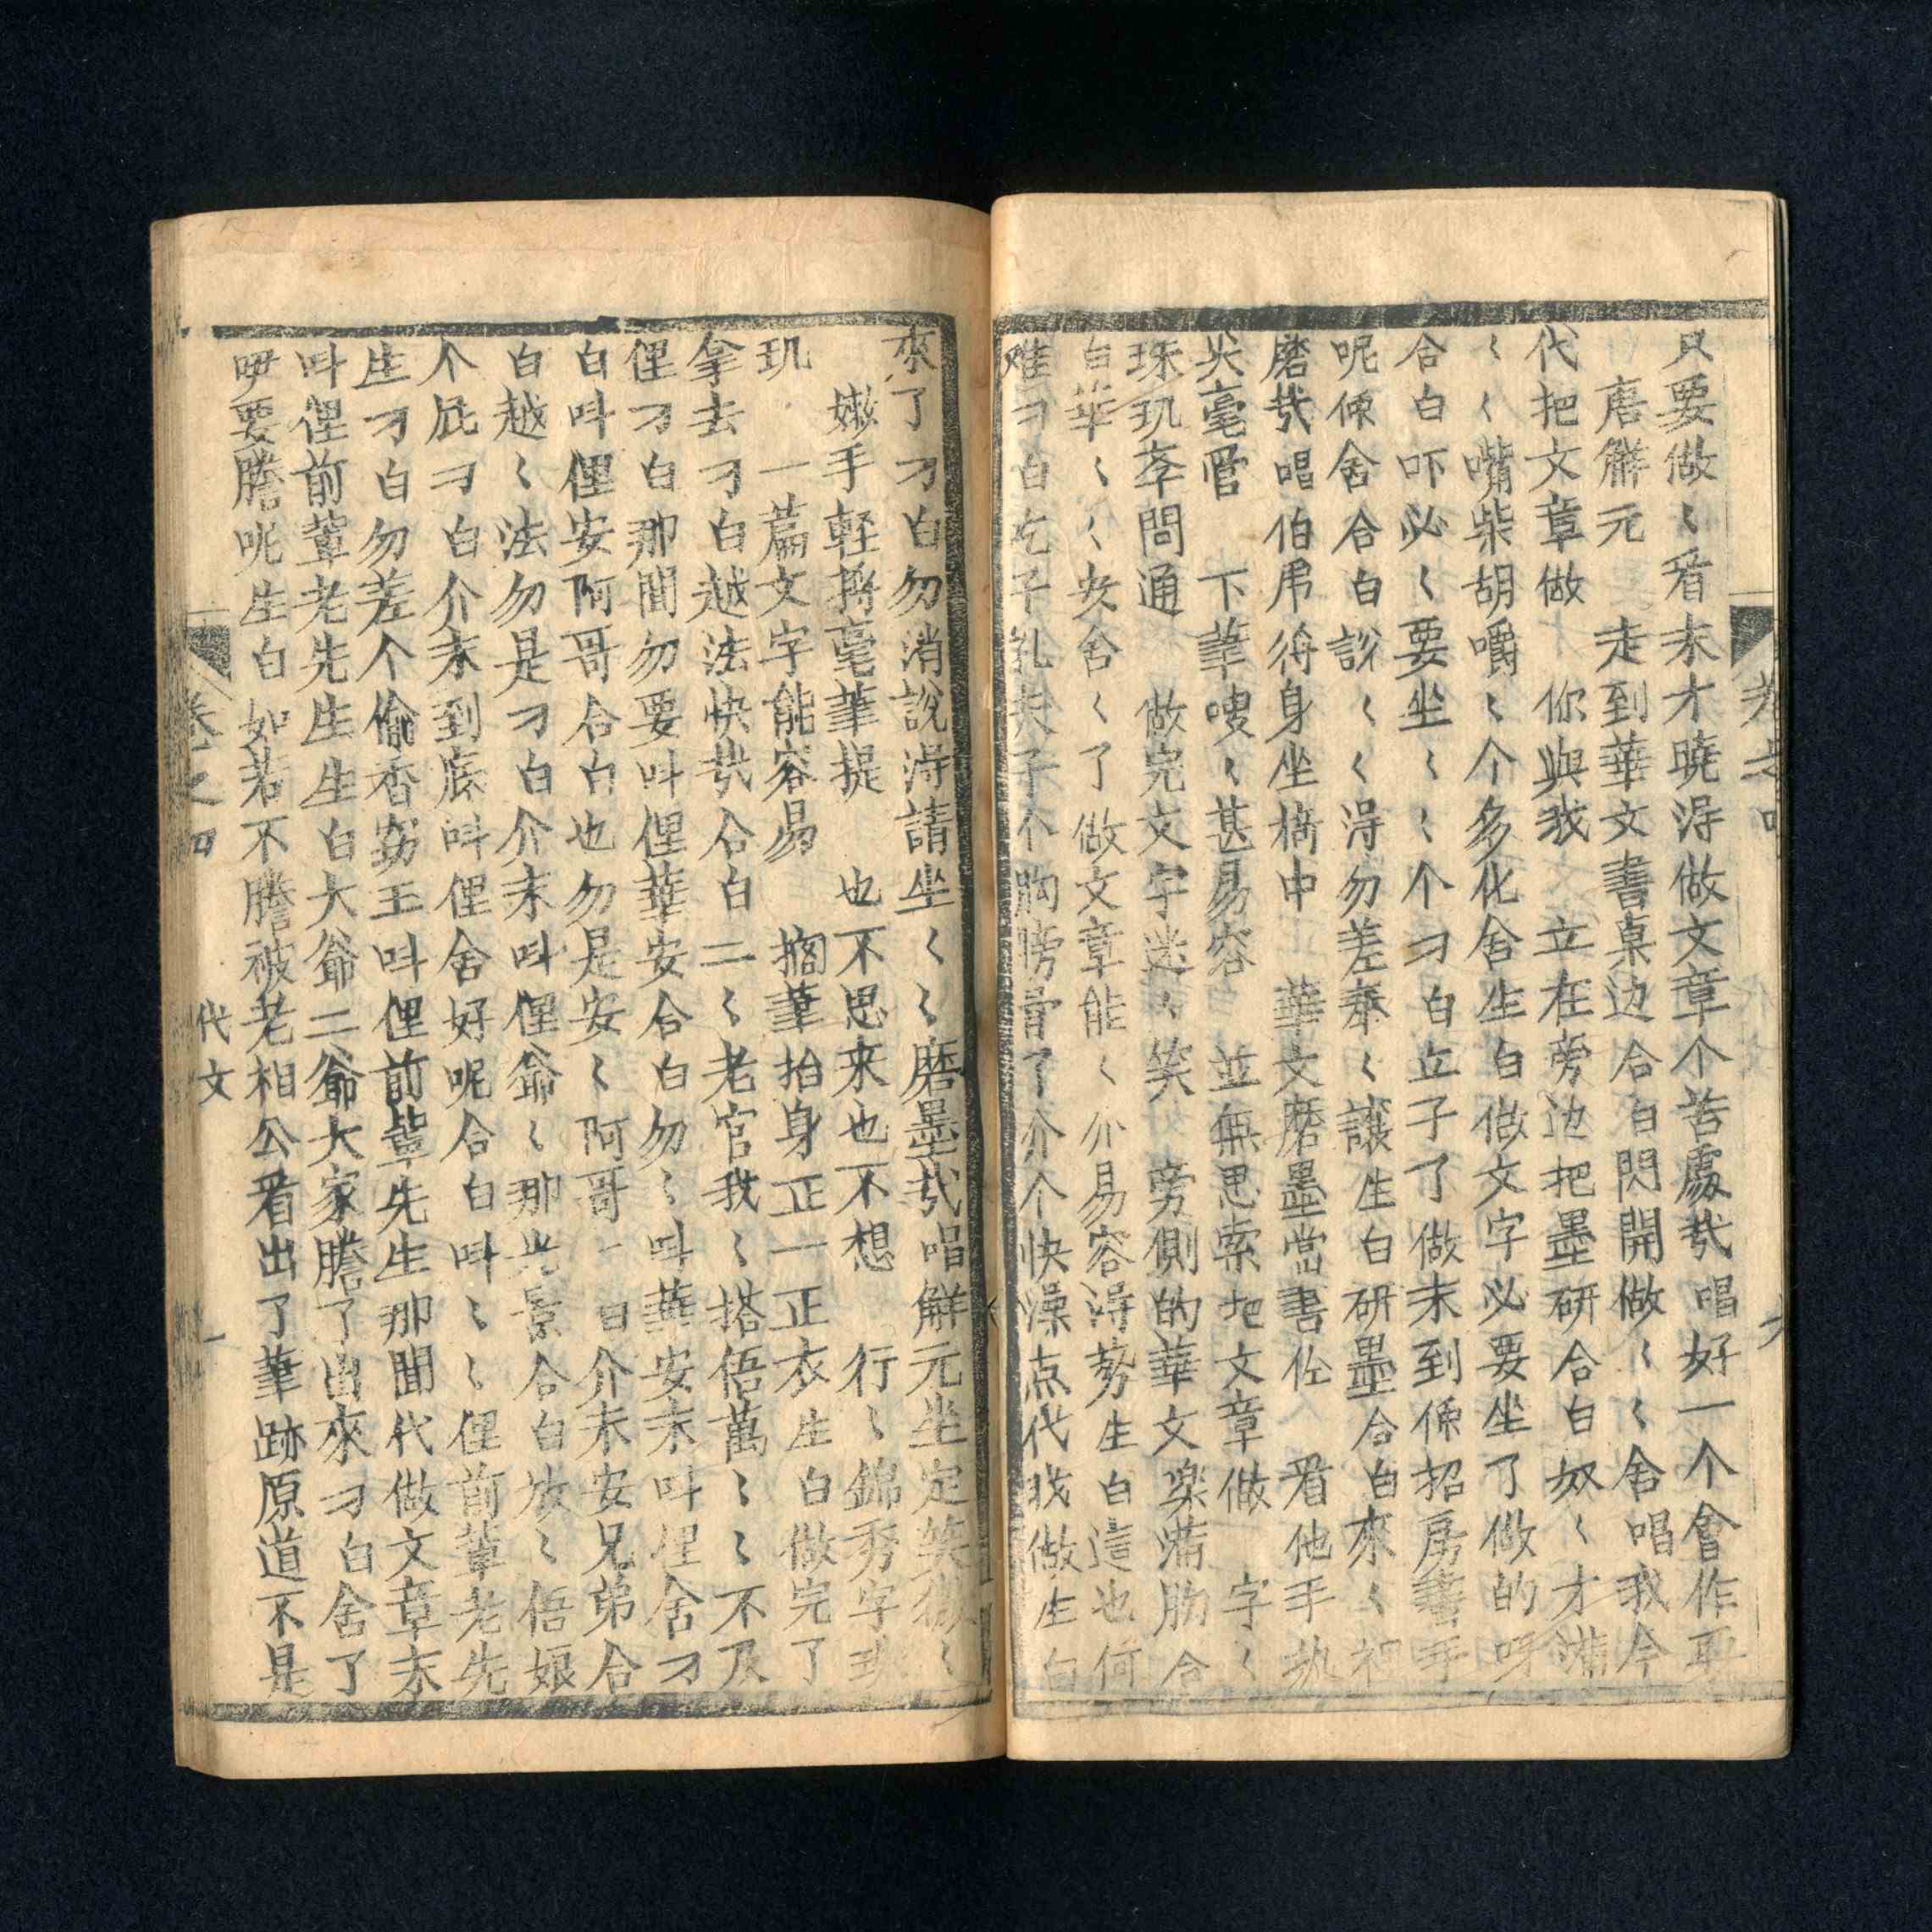 只要做〻看末才曉淂做文章个苦處㢤唱好一个會作
唐解元　走到華文書桌边合白閃開做〻〻舍唱我今
代把文章做　你與我　立在旁边把墨研合白奴〻才
〻〻嘴柴胡嚼〻个多化舍生白做文字必要坐了做的呀
合白吓必〻要坐〻〻个刁白立子了做末到像招房書手
呢像舍合白說〻〻淂勿差奉〻讓生白研墨合白來〻
磨㢤唱伯虎　身坐　中　華文磨墨當書佐　看他手执
尖毫管　下筆嗖〻甚易容　並無思索把文章做　字〻
珠玑　問通　做完文字迷〻笑　旁側的華文樂滿肋合
白華〻〻安舍〻了做文章能〻介易容淂势生白這也何
难刁白乞子孔夫子个胸膀骨了介个快燥点代我做生白
來了刁白勿消說淂請坐〻〻磨墨㢤唱解元坐定笑微〻
嫩手軽　毫筆提　也不思来也不想　行〻錦秀字
玑　一篇文字能容易　擱筆抬身正一正衣生白做完了
拿去刁白越法快㢤合白二〻老官我〻搭俉萬〻〻不及
俚刁白那間勿要呌俚華安合白勿〻呌華安末呌俚舍刁
白呌俚安阿哥合白也勿是安〻阿哥　白介末安兄弟合
白越〻法勿是刁白介末呌俚爺〻那光景合白放〻俉娘
个屁刁白介末到底呌俚舍好呢合白呌〻〻俚前輩老先
生刁白勿差个偷香窃玉呌俚前輩先生那聞代做文章末
呌俚前輩老先生生白大爺二爺大家謄了出來刁白舍了
咿要謄呢生白如若不謄被老相公看出了筆跡原道不是
卷之四　代文　一